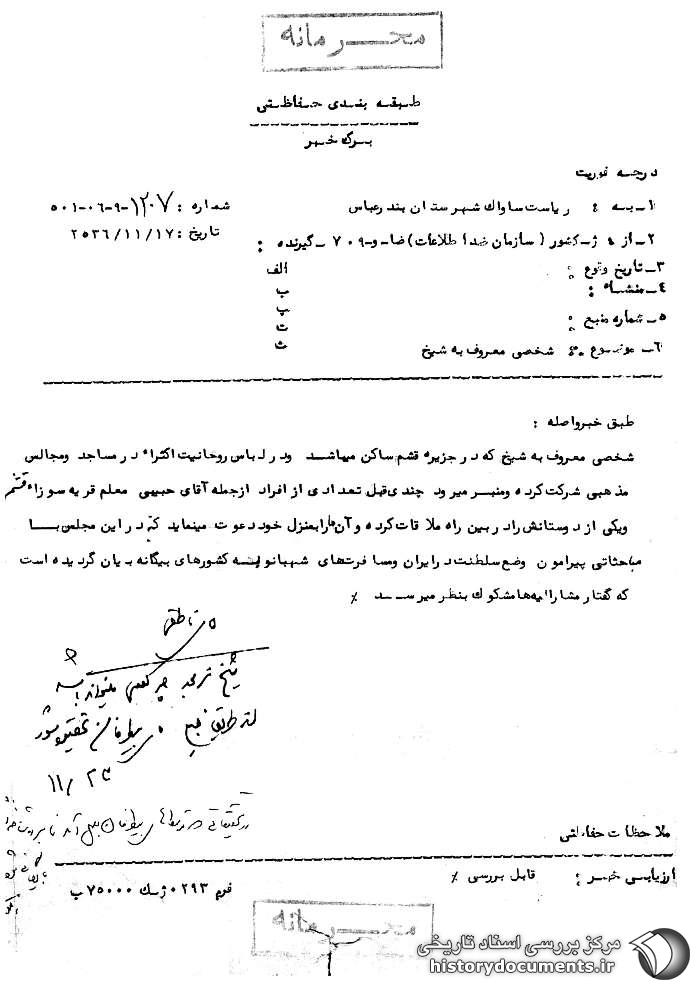 محرمانه
طبقه بندی حفاظتی
برگ خبر
درجه فوریت
۱ـ به : ریاست ساواك شهرستان بندرعباس
شماره : ۱۲۰۷-۹-۰۶-۵۰۱
۲ـ از : ژـ کشور ( سازمان ضد اطلاعات) ضاـ وـ ۷۰۹ ـ گیرنده :
تاریخ : ۲۵۳۶/۱۱/۱۷
۳ـ تاریخ وقوع :
الف
۴ـ منشاء :
ب
پ
۵ـ شماره منبع :
ت
۶ـ موضوع : شخصی معروف به شیخ
ث
طبق خبرواصله :
شخصی معروف به شیخ که در جزیره قشم ساکن میباشد ودر لباس روحانیت اکثراً در مساجد ومجالس
مذهبی شرکت کرده ومنبر میرود چندی قبل تعدادی از افراد ازجمله آقای حبیبی معلم قریه سوزاء قشم
ویکی از دوستانش رادر بین راه ملاقات کرده و آن هارابمنزل خود دعوت مینماید که در این مجلس بـا
مباحثاتی پیرامون وضع سلطنت در ایران ومسافرت های شهبانو به کشورهای بیگانه بیان گردیده است
که گفتار مشارالیه هامشکوك بنظر میرسـد ٪
شیخ
۱۱/۲۳
ملاحظات حفاظتی
ارزیابی خبر : قابل بررسی ٪
فرم ۰۲۹۳ ژسك ۷۵۰۰۰ ب
محرمانه
مرکز بررسی اسناد تاریخی
historydocuments.ir